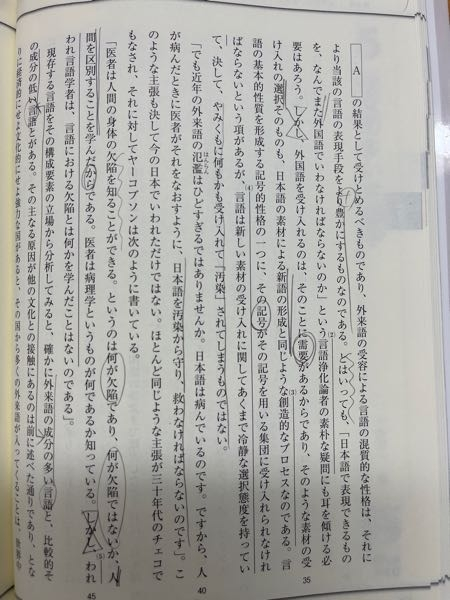 A の結果として受けとめるべきものであり、外来語の受容による言語の混質的な性格は、それに
より当該の言語の表現手段をより豊かにするものなのである。とはいっても、「日本語で表現できるもの
を、なんでまた外国語でいわなければならないのか」という言語浄化論者の素朴な疑問にも耳を傾ける必
要はあろう。しかし、外国語を受け入れるのは、そのことに需要があるからであり、そのような素材の受
け入れの選択そのものも、日本語の素材による新語の形成と同じような創造的なプロセスなのである。言
語の基本的性質を形成する記号的性格の一つに、その記号がその記号を用いる集団に受け入れられなけれ
ばならないという項があるが、言語は新しい素材の受け入れに関してあくまで冷静な選択態度を持ってい
て、決して、やみくもに何もかも受け入れて「汚染」されてしまうものではない。
「でも近年の外来語の氾濫はひどすぎるではありませんか。日本語は病んでいるのです。ですから、人
が病んだときに医者がそれをなおすように、日本語を汚染から守り、救わなければならないのです」。こ
のような主張も決して今の日本でいわれただけではない。ほとんど同じような主張が三十年代のチェコで
もなされ、それに対してヤーコブソンは次のように書いている。
「医者は人間の身体の欠陥を知ることができる。というのは何が欠陥であり、何が欠陥ではないか、人
間を区別することを学んだからである。医者は病理学というものが何であるか知っている。しかし、われ
われ言語学者は、言語における欠陥とは何かを学んだことはないのである」。
現存する言語をその構成要素の立場から分析してみると、確かに外来語の成分の多い言語と、比較的そ
の成分の低い言語とがある。その主なる原因が他の文化との接触にあるのは前に述べた通りであり、とな
りに経済的にせよ文化的にせよ強力な国があると、その国から多くの外来語が入ってくることは、世界中
(2)
(3)
(4)
(5)
ほんらん
35
40
45